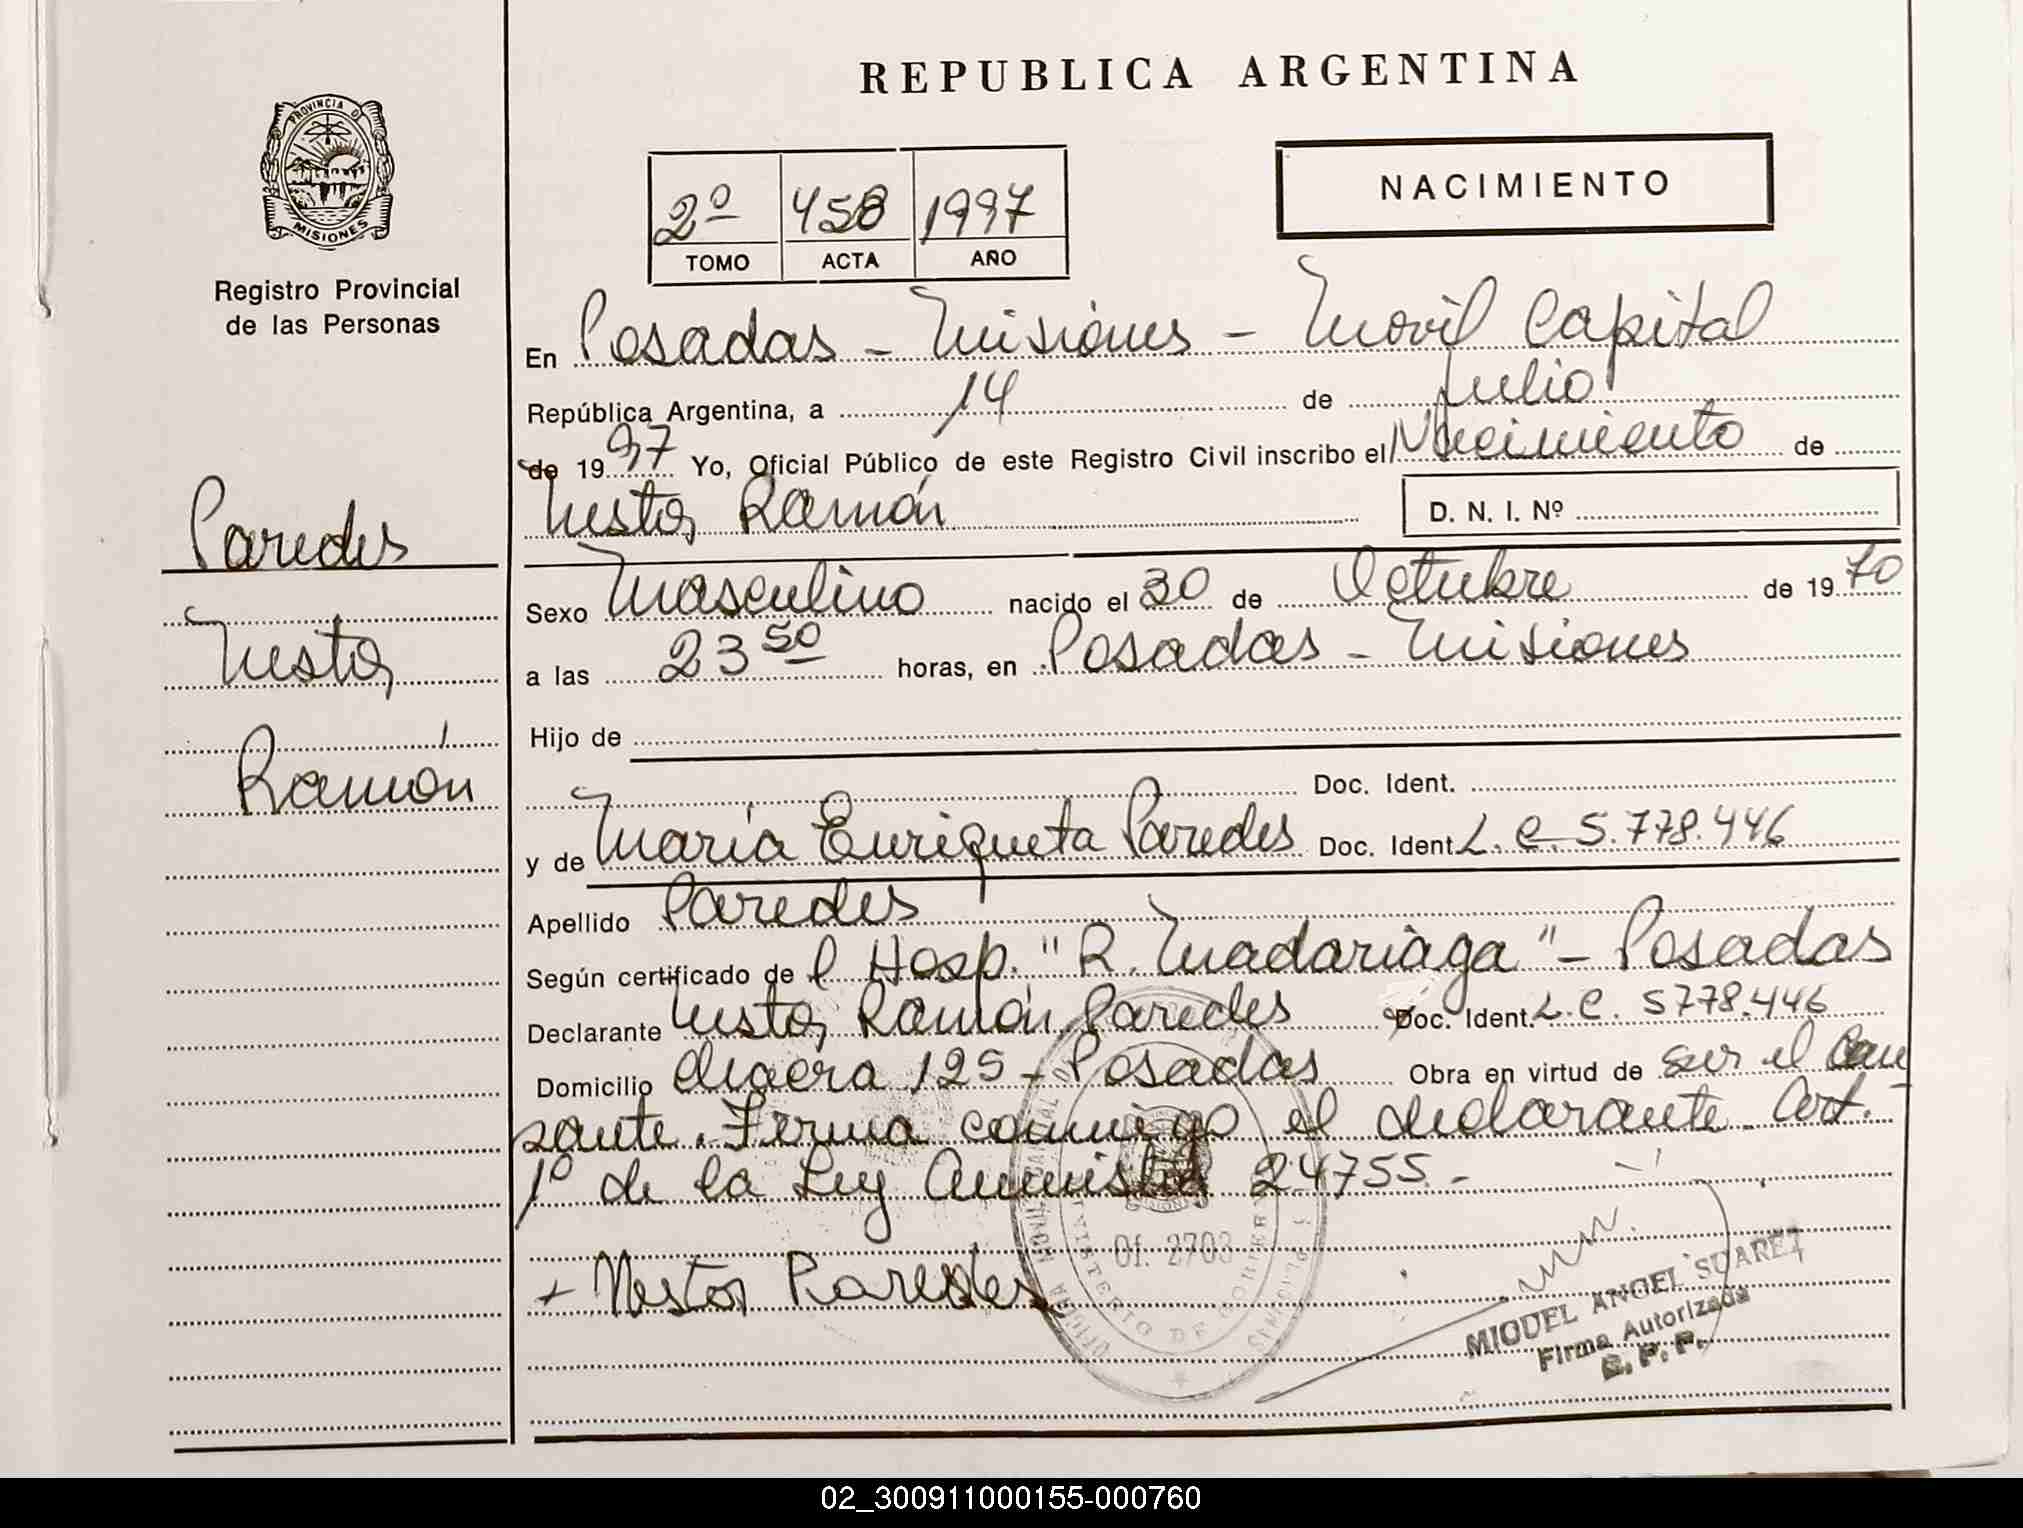 REPUBLICA ARGENTINA
PROVINCIA DE
MISIONES
Registro Provincial
de las Personas
2º 458 1997
TOMO ACTA AÑO
NACIMIENTO
En Posadas - Misiones - Movil Capital
República Argentina, a 14 de Julio
de 1997 Yo, Oficial Público de este Registro Civil inscribo el Nacimiento de
Nestor Ramón D. N. I. Nº
Paredes
Nestor
Ramón
Sexo Masculino nacido el 30 de Octubre de 1970
a las 23 50 horas, en Posadas - Misiones
Hijo de
Doc. Ident.
y de María Enriqueta Paredes Doc. Ident L. C. 5.778.446
Apellido Paredes
Según certificado de l Hosp. "R. Madariaga" - Posadas
Declarante Nestor Ramón Paredes Doc. Ident. L. C. 5778.446
Domicilio 125 - Posadas Obra en virtud de ser el Cau
sante. Firma conmigo el declarante. Art.
1º de la Ley Amnistia 24755.-
Of. 2703
MINISTERIO DE GOBIERNO
+ Nestor Paredes
MIGUEL ANGEL SUAREZ
Firma Autorizada
R. P. P.
02_300911000155-000760